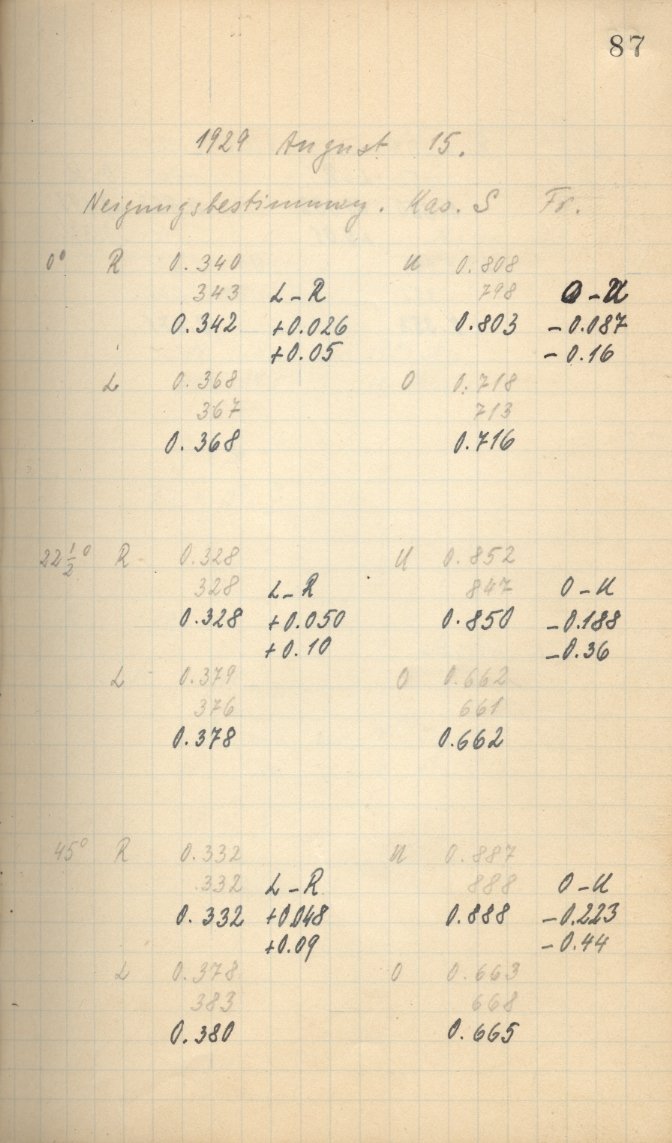 87
1929 August 15.
Neigungsbestimmung. Kas. S Fr.
0° R 0.340 U 0.808
343 L-R 798 O-U
0.342 +0.026 0.803 -0.087
+0.05 -0.16
L 0.368 O 0.718
367 713
0.368 0.716
22 1/2° R 0.328 U 0.852
328 L-R 847 O-U
0.328 +0.050 0.850 -0.188
+0.10 -0.36
L 0.379 O 0.662
376 661
0.378 0.662
45° R 0.332 U 0.887
332 L-R 888 O-U
0.332 +0.048 0.888 -0.223
+0.09 -0.44
L 0.378 O 0.663
383 668
0.380 0.665